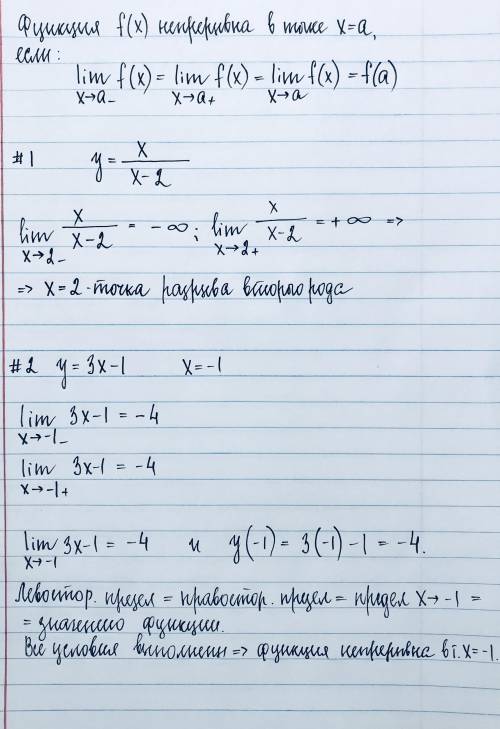 Функция f(x) непрерывна в точке x=a,
если:
lim f(x) = lim f(x) = lim f(x) = f(a)
x→a- x→a+ x→a
#1 y = x/(x-2)
lim x/(x-2) = -∞; lim x/(x-2) = +∞ =>
x→2- x→2+
=> x=2 - точка разрыва второго рода
#2 y = 3x-1 x=-1
lim 3x-1 = -4
x→-1-
lim 3x-1 = -4
x→-1+
lim 3x-1 = -4 и y(-1) = 3(-1)-1 = -4.
x→-1
Левостор. предел = правостор. предел = придел x→-1 =
= значению функции.
Все условия выполнены => функция непрерывна в т. x=-1.